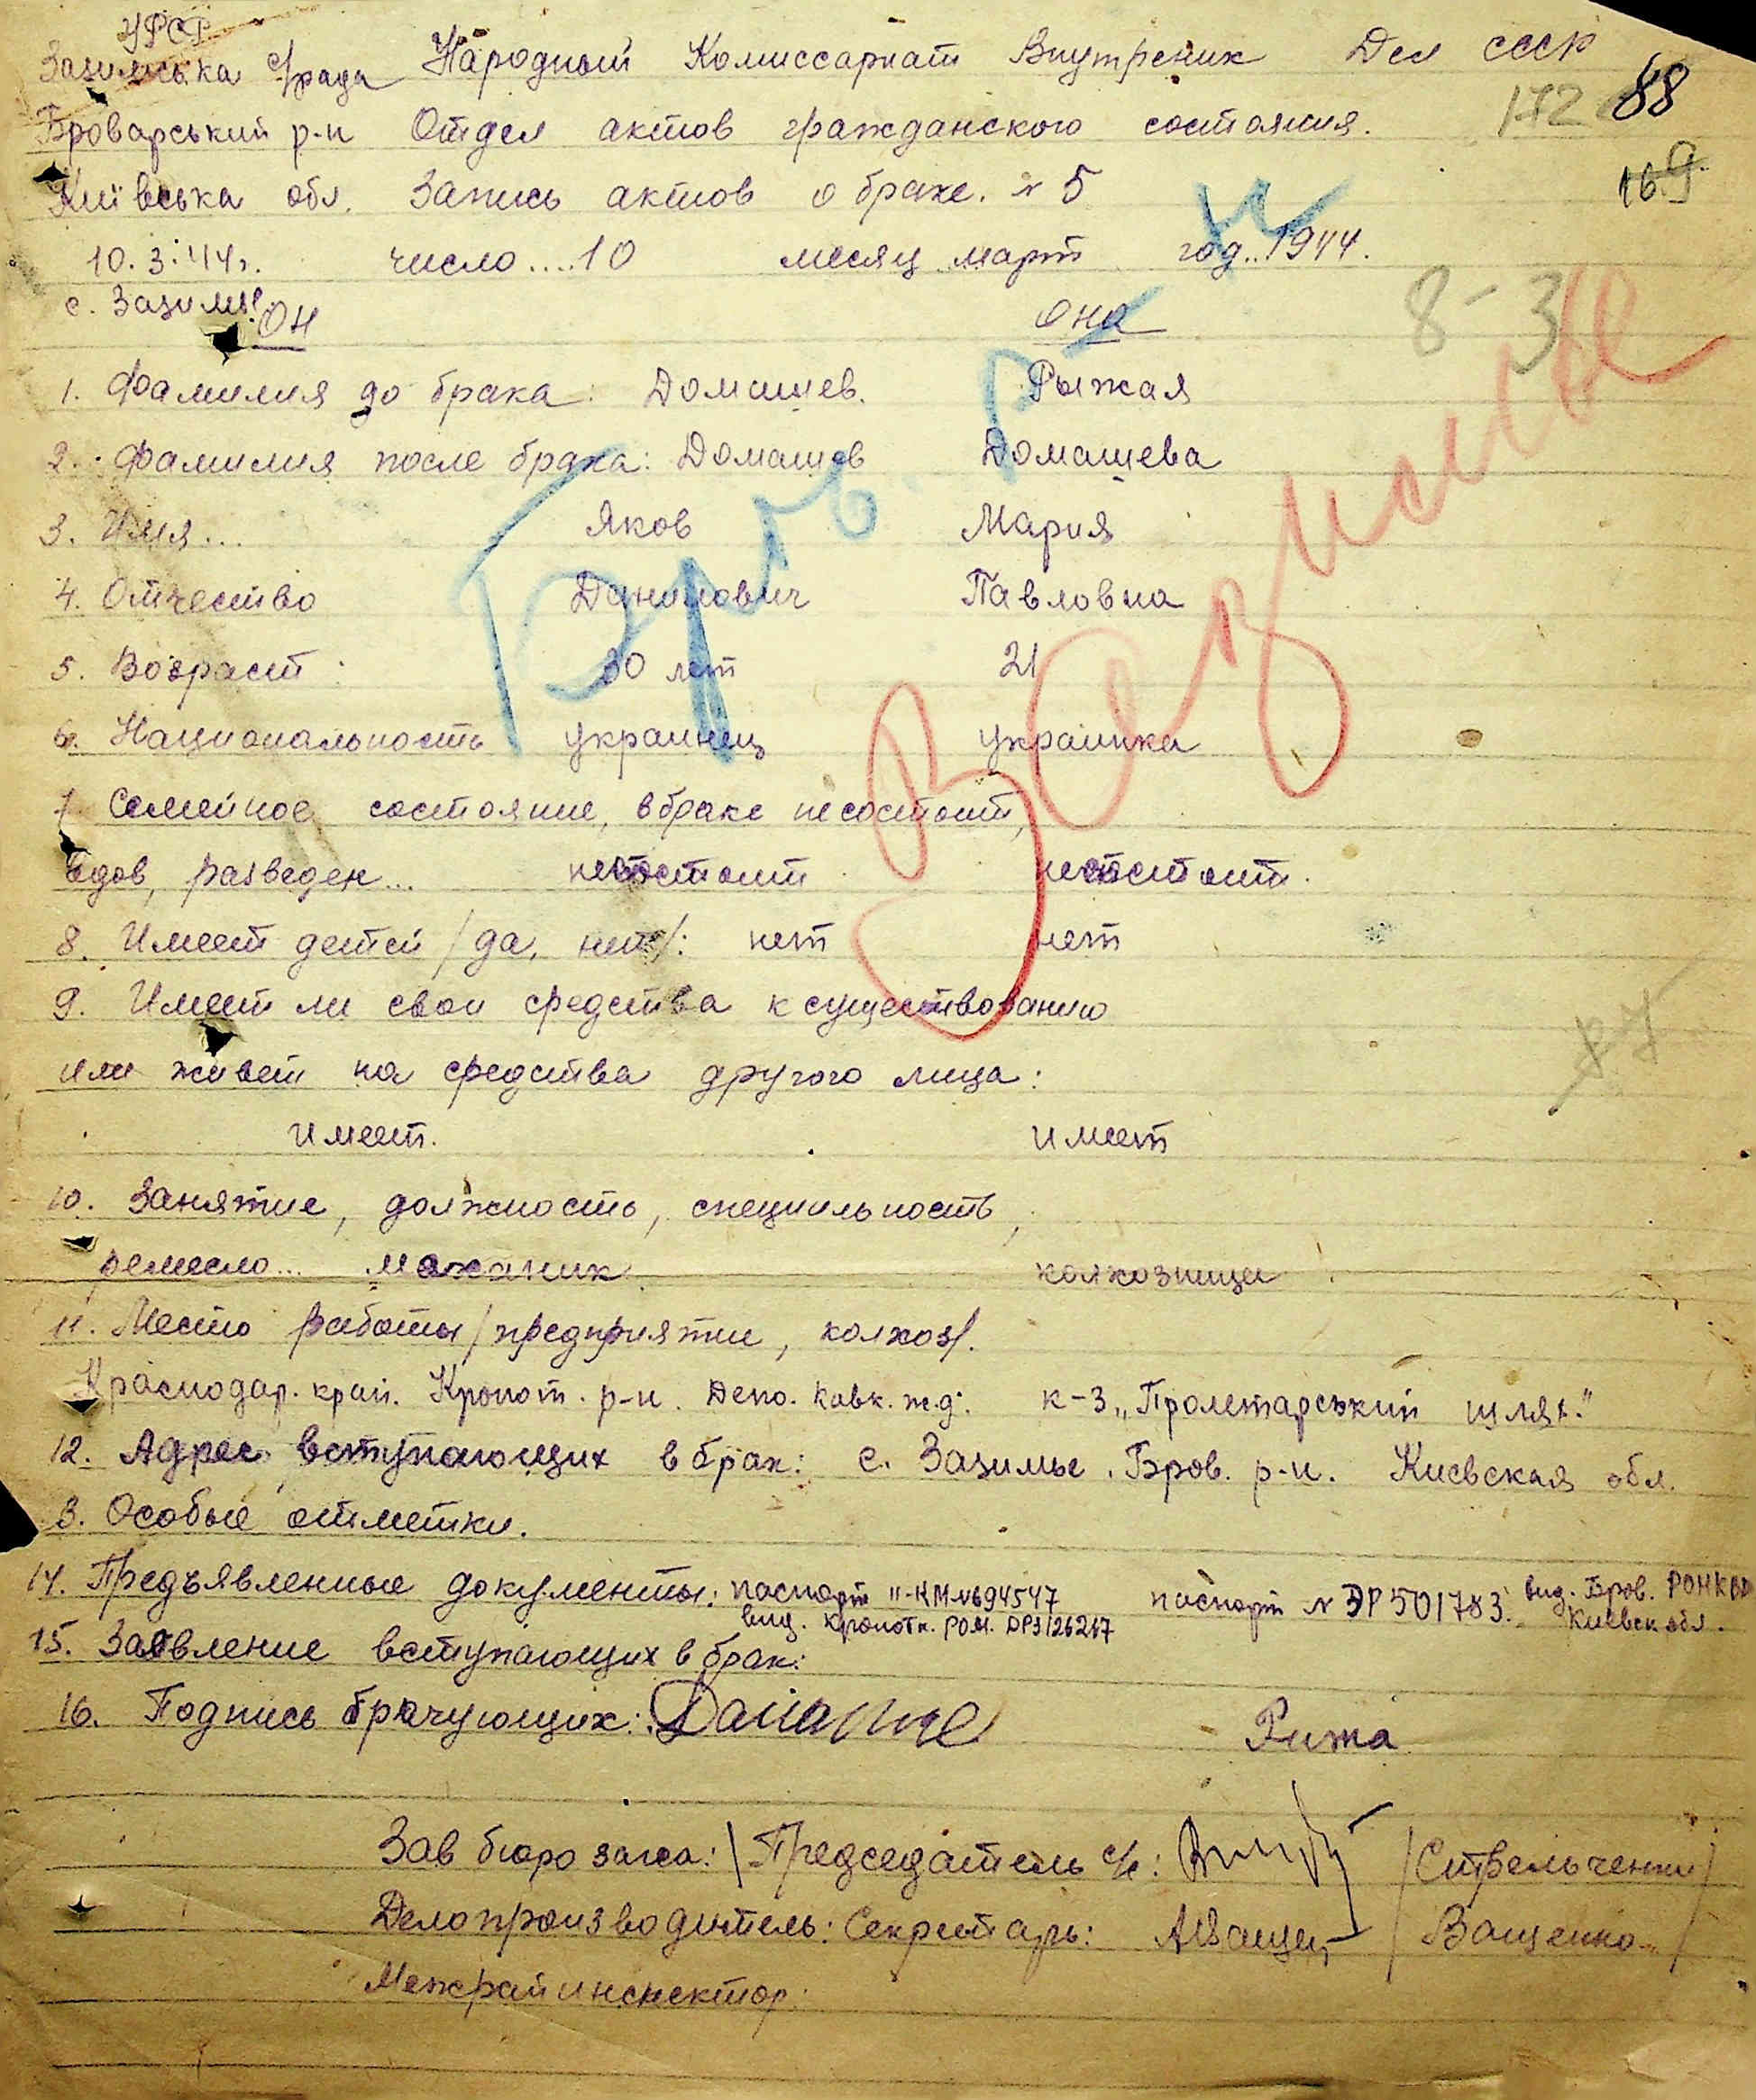 УРСР
Зазимська с/рада Народный Комиссариат Внутрених Дел СССР
Броварський р-н Отдел актов гражданского состояния. 172 88
Київська обл. Запись актов о браке. N 5 169
10.3.44г. число....10 месяц март год..1944.
с. Зазимье
8-3
Он Она
1. Фамилия до брака: Домашев. Рыжая
2. Фамилия после брака: Домашев Домашева
3. Имя... Яков Мария
4. Отчество Данилович Павловна
5. Возраст: 30 лет 21
6. Национальность украинец украинка
7 Семейное состояние, в браке не состоит,
вдов, разведен... несостоит несостоит.
8. Имеет детей /да, нет/: нет нет
9. Имеет ли свои средства к существованию
или живет на средства другого лица:
имеет. имеет
10. Занятие, должность, специальность,
ремесло... механик колхозница
11. Место работы /предприятие, колхоз/.
Краснодар. край. Кропот. р-н. Депо. Кавк. ж.д. к-з „Пролетарський шлях."
12. Адрес вступающих в брак: с. Зазимье. Бров. р-н. Киевская обл.
13. Особые отметки.
14. Предъявленные документы: паспорт II-НМ N694547 паспорт N ЭР 501783. выд. Бров. РОНКВД
выд. Кропотк. РОМ. ДРЗ126267 Киевск обл.
15. Заявление вступающих в брак:
16. Подпись брачующихся: Рижа
Зав бюро загса: / Председатель с/с: /Стрельченко/
Делопроизводитель: Секретарь: АВащен /Ващенко/
Межрайинспектор:
Бров. р-н
Зазимье